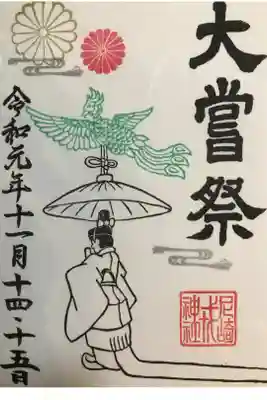 大嘗祭
令和元年十一月十四・十五日
尼崎
戎
神社